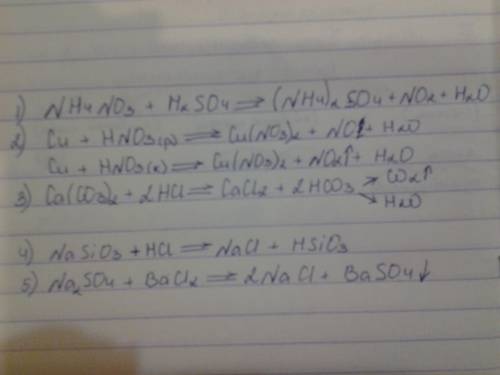 1) NH4NO3 + H2SO4 ⇒ (NH4)2SO4 + NO2 + H2O
2) Cu + HNO3(p) ⇒ Cu(NO3)2 + NO↑ + H2O
Cu + HNO3(к) ⇒ Cu(NO3)2 + NO2↑ + H2O
3) Ca(CO3)2 + 2HCl ⇒ CaCl2 + 2HCO3 → CO2↑
→ H2O
4) NaSiO3 + HCl ⇒ NaCl + HSiO3
5) Na2SO4 + BaCl2 ⇒ 2NaCl + BaSO4↓